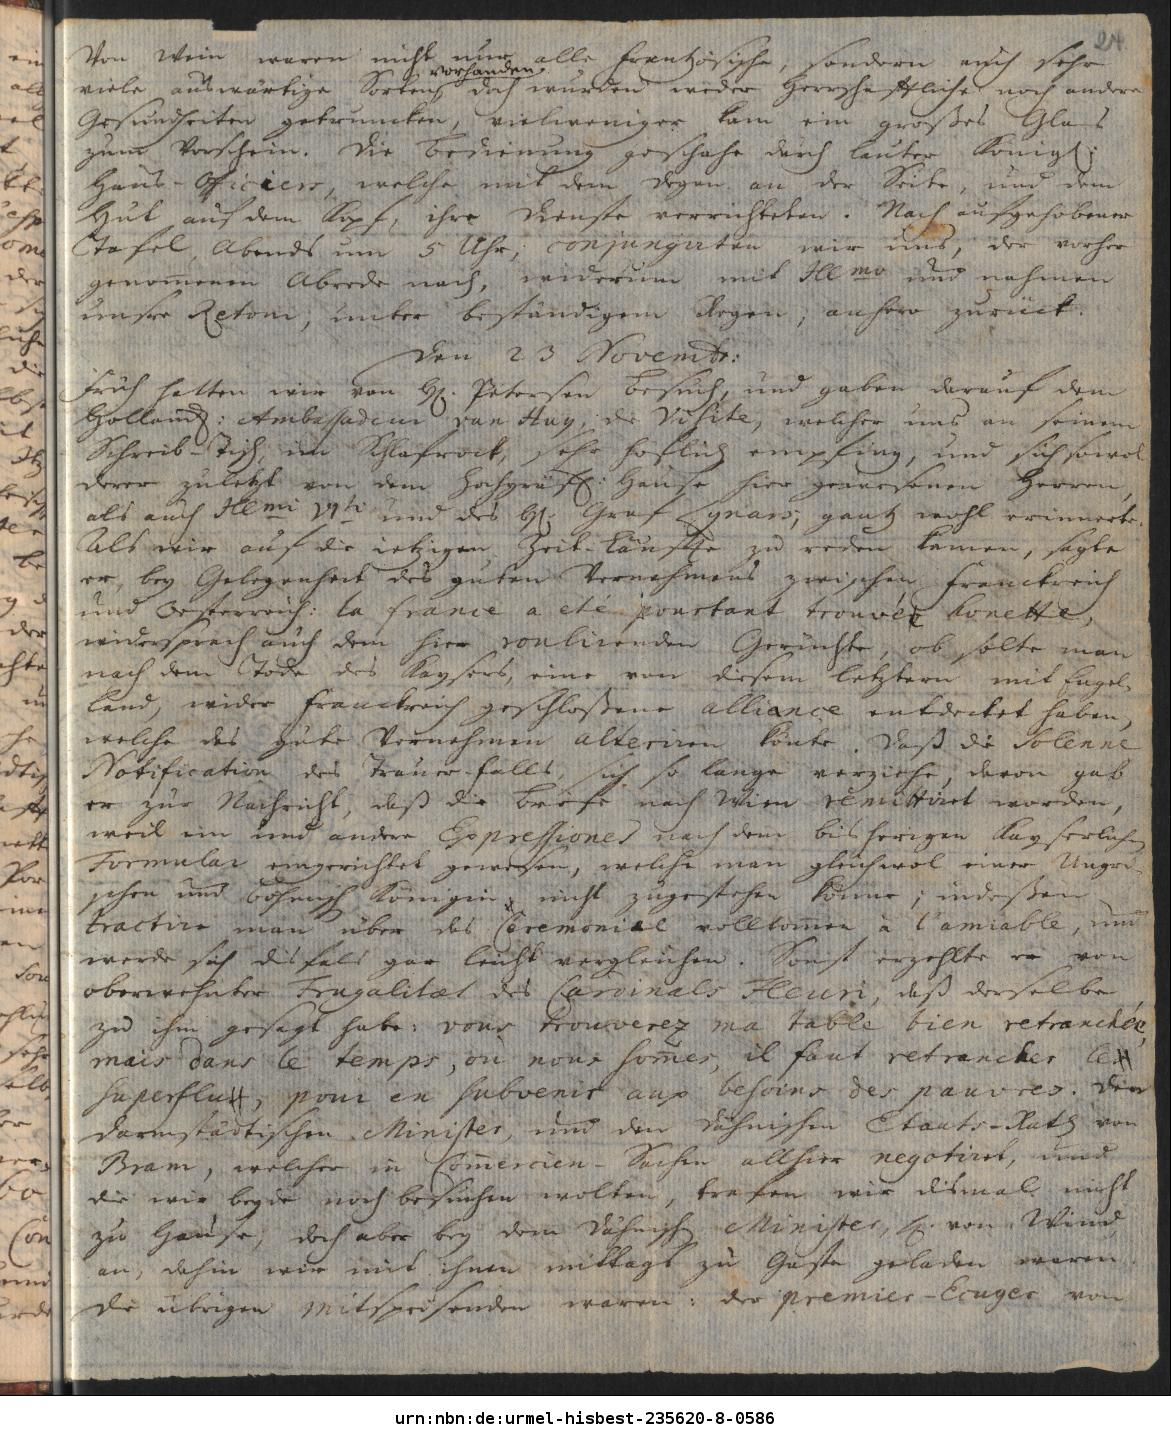 24
Von Wein waren nicht nur alle Frantzösische, sondern auch sehr
viele auswärtige Sorten vorhanden, doch wurden weder Herrschafftliche noch andere
Gesundheiten getruncken, vielweniger kam ein großes Glas
zum Vorschein. Die Bedienung geschahe durch lauter Königl:
Haus-Officiers, welche mit dem Degen an der Seite, und dem
Hut auf dem Kopf, ihre Dienste verrichteten. Nach aufgehobener
Tafel, Abends um 5 Uhr, conjungirten wir uns, der vorher
genommenen Abrede nach, widerum mit Illmo und nahmen
unsre Retour, unter beständigem Regen, anhero zurück.
Den 23 Novembr:
Früh hatten wir von H. Petersen Besuch, und gaben darauf dem
Holländ: Ambassadeur van Hoy, die Visite, welcher uns an seinem
Schreib-Tisch, im Schlafrock, sehr höflich empfing, und sich sowol
derer zuletzt von dem Hochgräfl: Hause hier gewesenen Herren,
als auch Illmi und des H. Graf Lynars, gantz wohl erinnerte.
Als wir auf die ietzigen Zeit-Läuffte zu reden kamen, sagte
er, bey Gelegenheit des guten Vernehmens zwischen Franckreich
und Oesterreich: la france a eté pourtant trouvée honette,
widersprach auch dem hier roulirenden Gerüchte, ob solte man
nach dem Tode des Kaysers, eine von diesem letztern mit Engel-
land, wider Franckreich geschloßene alliance entdecket haben,
welche das gute Vernehmen alteriren könte. Daß die Solenne
Notification des Trauer-falls, sich so lange verziehe, davon gab
er zur Nachricht, daß die Briefe nach Wien remittiret worden,
weil ein und andere Expressiones nach dem bisherigen Kayserlichen
Formular eingerichtet gewesen, welche man gleichwol einer Ungri-
schen und Böhmisch Königin nicht zugestehen könne; indeßen
tractire man über das Ceremoniel vollkommen à l'amiable, und
werde sich disfals gar leicht vergleichen. Sonst erzehlte er von
oberwehnter Frugalitæt des Cardinals Fleuri, daß derselbe
zu ihm gesagt habe: vous trouverez ma table bien retranchée,
mais dans le temps, où nous somes, il faut retrancher le
superflu, pour en subvenir aux besoins des pauvres. Den
Darmstädtischen Minister, und den Dähnischen Etaats-Rath von
Bram, welcher in Commercien-Sachen allhier negotiret, und
die wir beyde noch besuchen wolten, trafen wir dismal nicht
zu Hause, doch aber bey dem Dähnisch Minister, H. von Wind
an, dahin wir mit ihnen mittags zu Gaste geladen waren.
Die übrigen Mitspeisenden waren: der premier-Ecuyer von
urn:nbn:de:urmel-hisbest-235620-8-0586